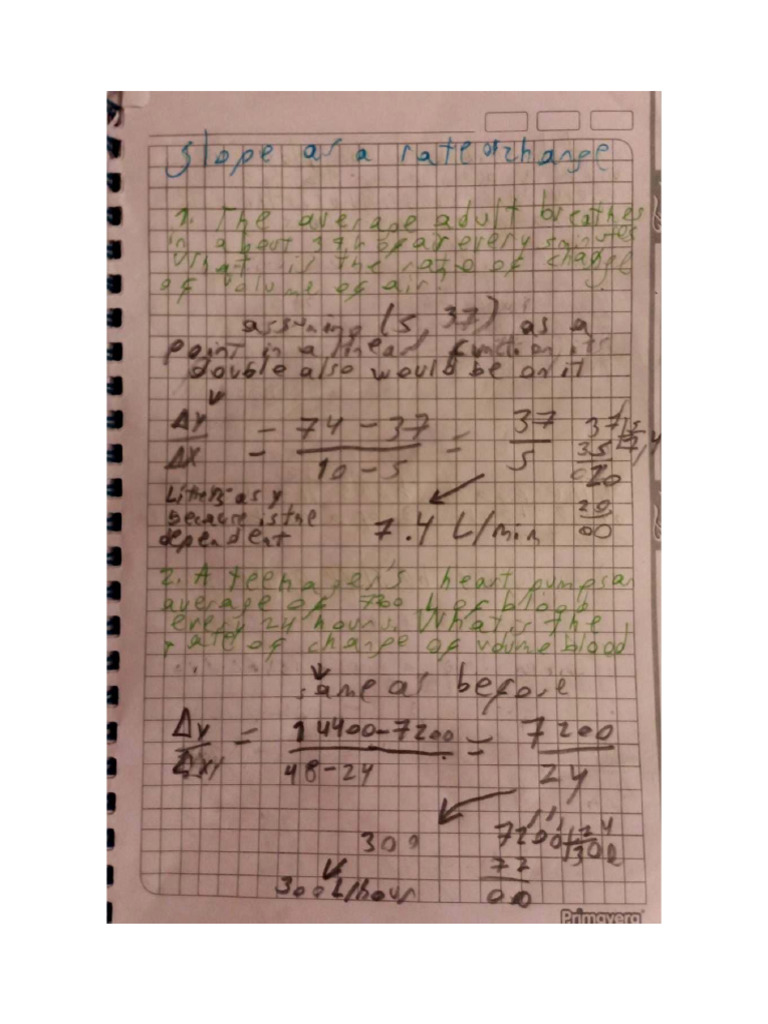 Slope as a rate of change
1. The average adult breathes
in about 37 L of air every 5 minutes
What is the rate of change
of volume of air?
assuming (5, 37) as a
point in a linear function its
double also would be on it
Δy/Δx = 74 - 37 / 10 - 5 = 37/5
37 5
35 7,4
020
20
00
Liters as y
because is the
dependent
7.4 L/min
2. A teenager's heart pumps an
average of 7200 L of blood
every 24 hours. What is the
rate of change of volume blood
same as before
Δy/Δx = 14400-7200 / 48-24 = 7200/24
300
7200 24
72 300
00
300 L/hour
Primavera